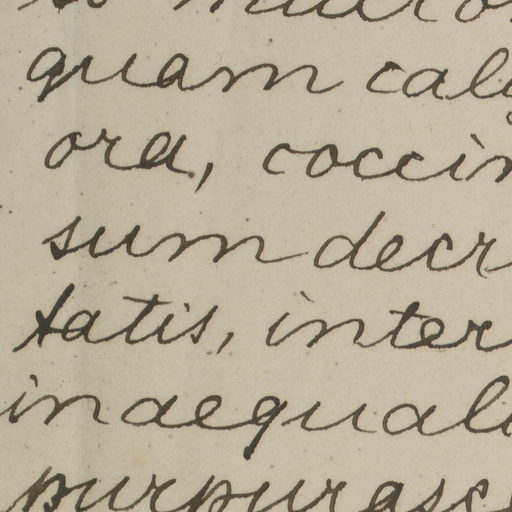 quam caly
ora, coccin
sum decr
tatis, inter
inaequali
purpurasce